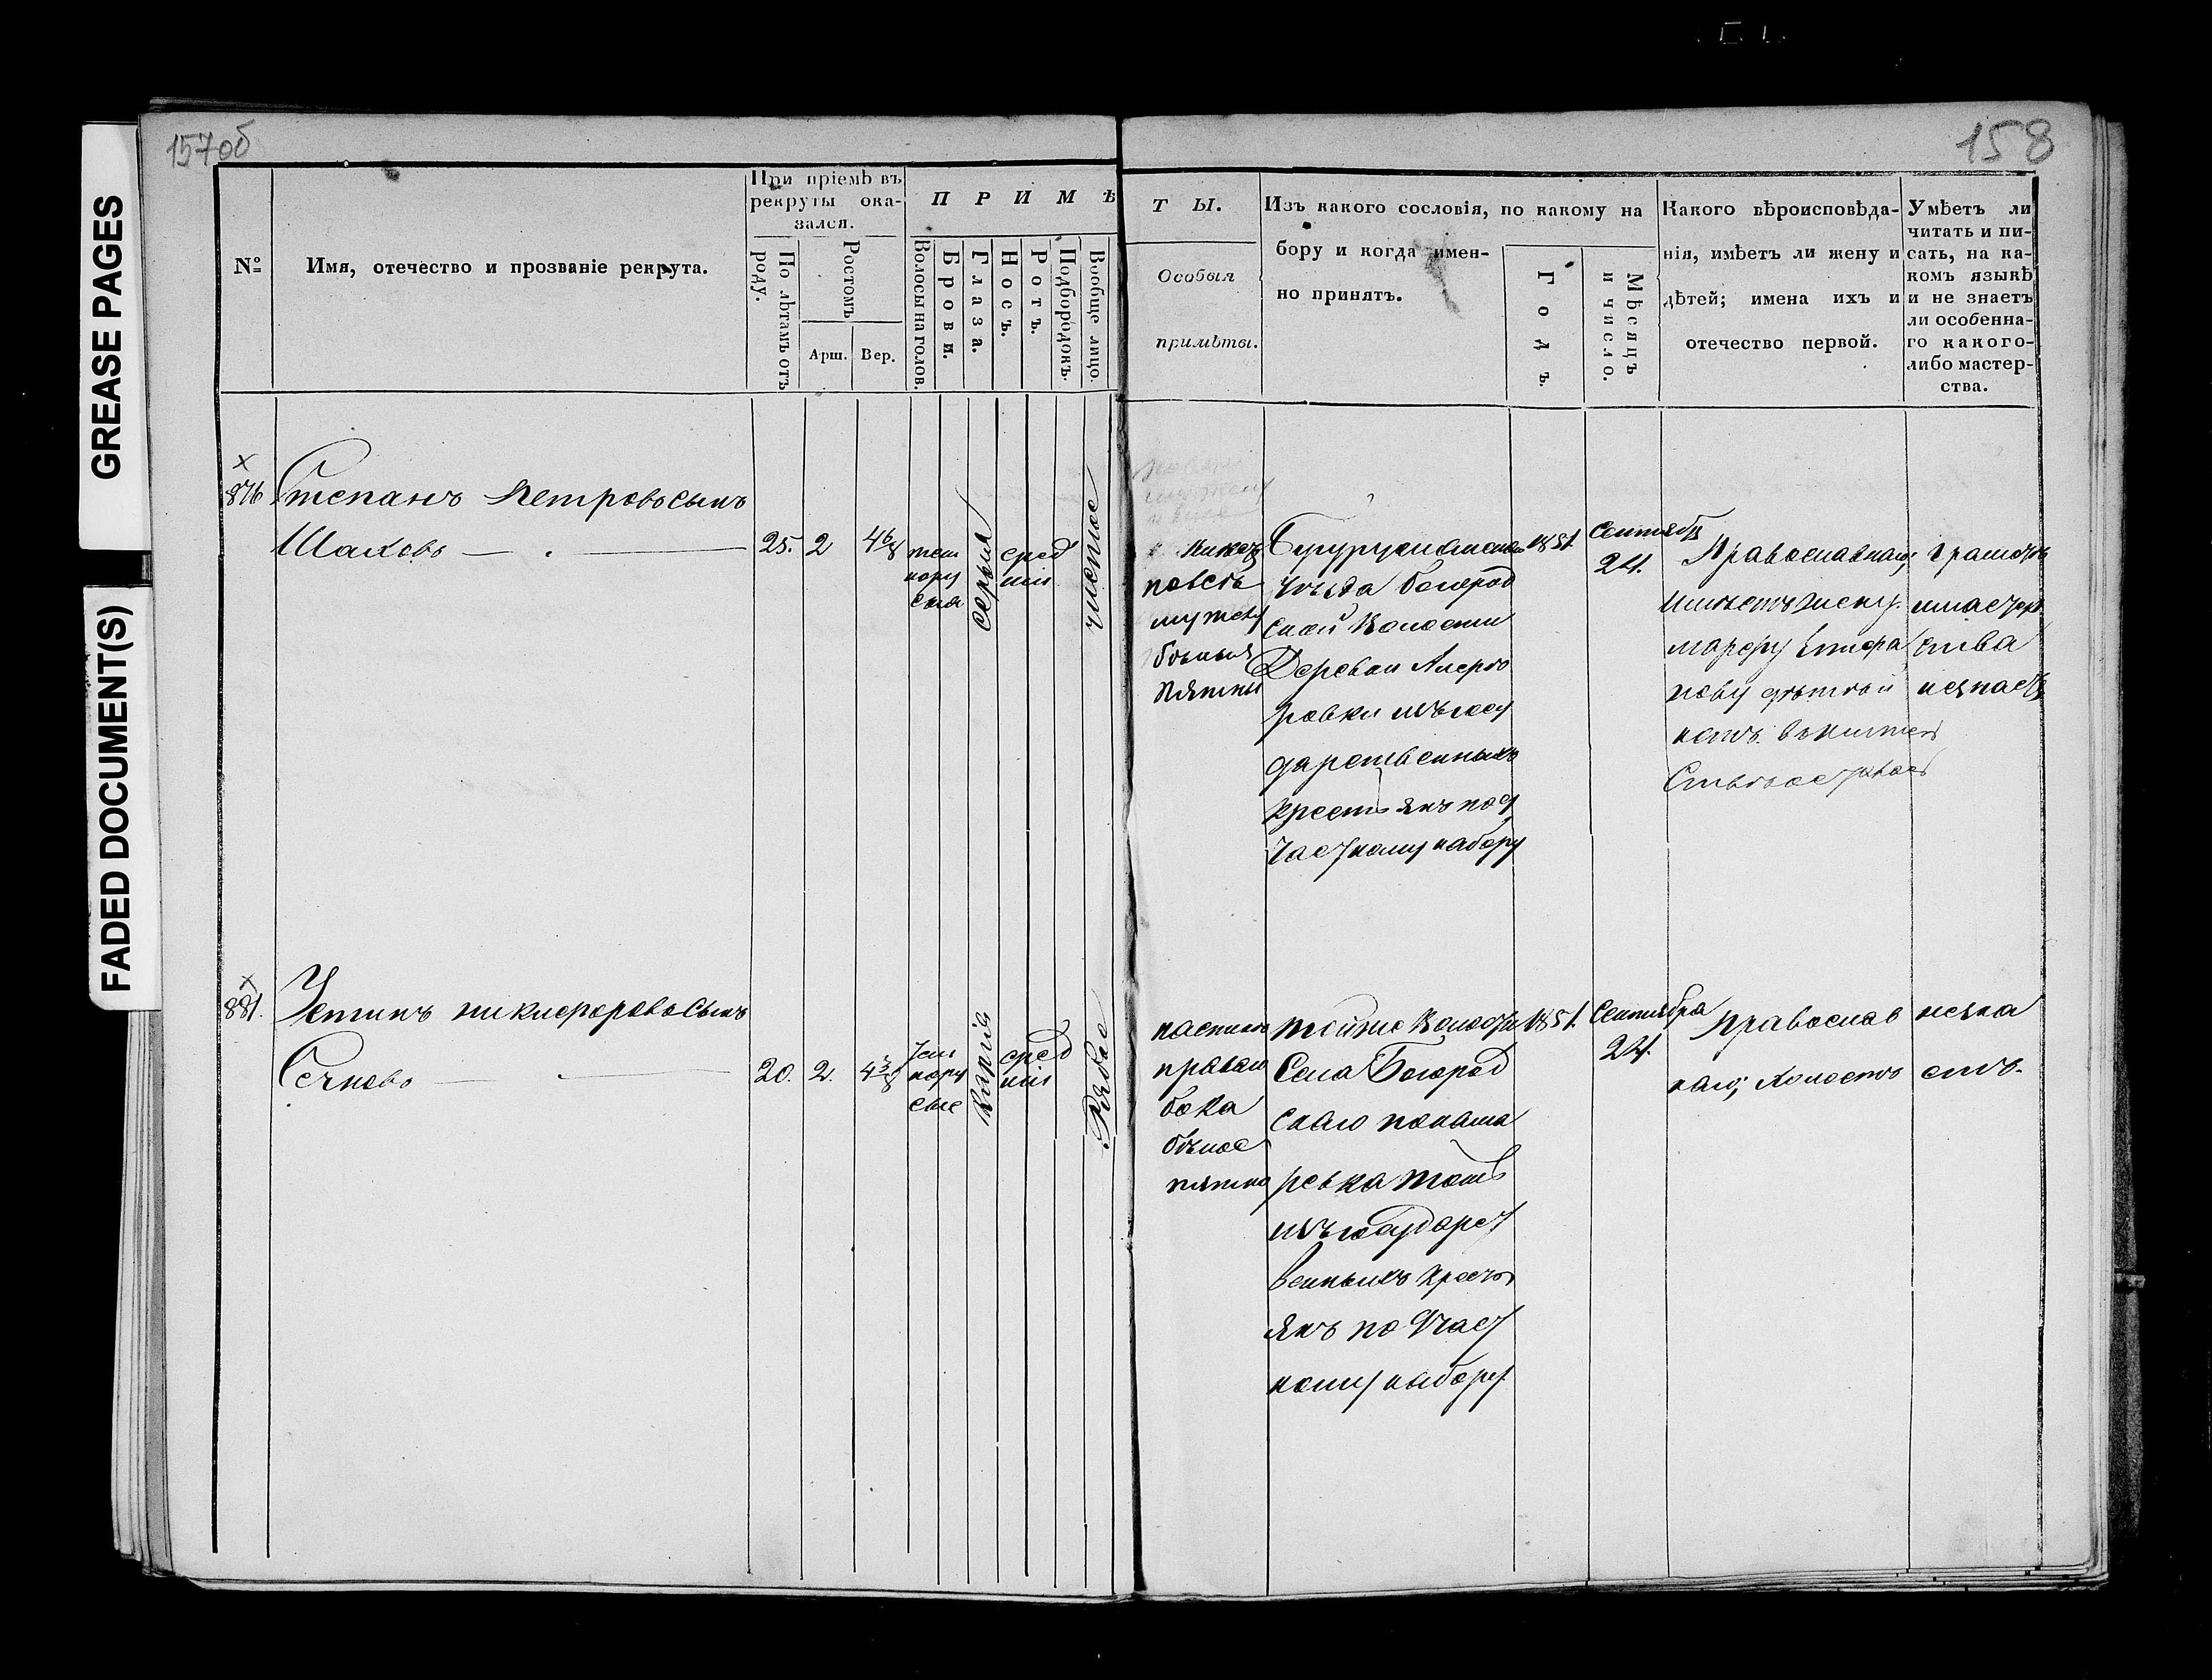 157об
158
GREASE PAGES
FADED DOCUMENT(S)
№
Имя, отечество и прозваніе рекрута.
При пріемѣ въ
рекруты ока-
зался.
По лѣтамъ отъ
роду.
Ростомъ
Арш. Вер.
ПРИМѢ
Волосы на голов.
Брови.
Глаза.
Носъ.
Ротъ.
Подбородокъ.
Вообще лицо.
ТЫ.
Особыя
примѣты.
Изъ какого сословія, по какому на
бору и когда имен-
но принятъ.
Годъ.
Мѣсяцъ
и число.
Какого вѣроисповѣда-
нія, имѣетъ ли жену и
дѣтей; имена ихъ и
отечество первой.
Умѣетъ ли
читать и пи-
сать, на ка-
комъ языкѣ
и не знаетъ
ли особенна-
го какого-
либо мастер-
ства.
876
Степанъ Петровъ сынъ
Шаховъ
25. 2
тем
нору
сыя
серыя
сред
ніи
чистое
бѣлыя
пятны
уѣзда Богород
ской Волости
Деревни
ровки изъ госу
дарственныхъ
крестьянъ по
частному набору
1851.
Сентября
24.
Православнаго;
имѣетъ жену
Марфу
пову дѣтей
нетъ.
грамотѣ
и мастер
ства
не знаетъ
881.
Устинъ Никифоровъ Сынъ
Сечновъ
20. 2. 4 3/8
тем
нору
сые
каріи
сред
ніи
Рябое
на
правом
бока
бѣлое
пятно
той же Волости
Села Богород
скаго
ревка тожъ
изъ государст
венныхъ кресть
янъ по Част
ному набору
1851.
Сентября
24.
Православ
наго; Холостъ
не зна
етъ.